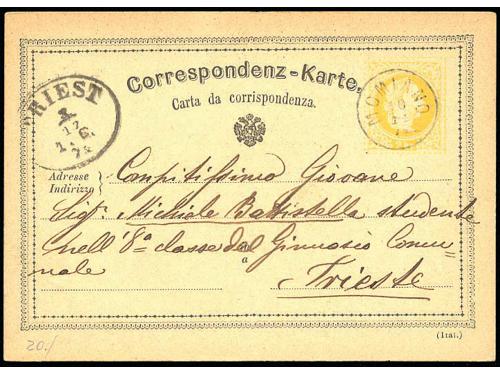 Correspondenz-Karte.
Carta da corrispondenza.
TRIEST
MOMIANO
Adresse
Indirizzo
Compitissimo Giovane
Sigr. Michiele Battistella studente
nell' 8a classe del Ginnasio Comu-
nale a
Trieste
(Ital.)
20./